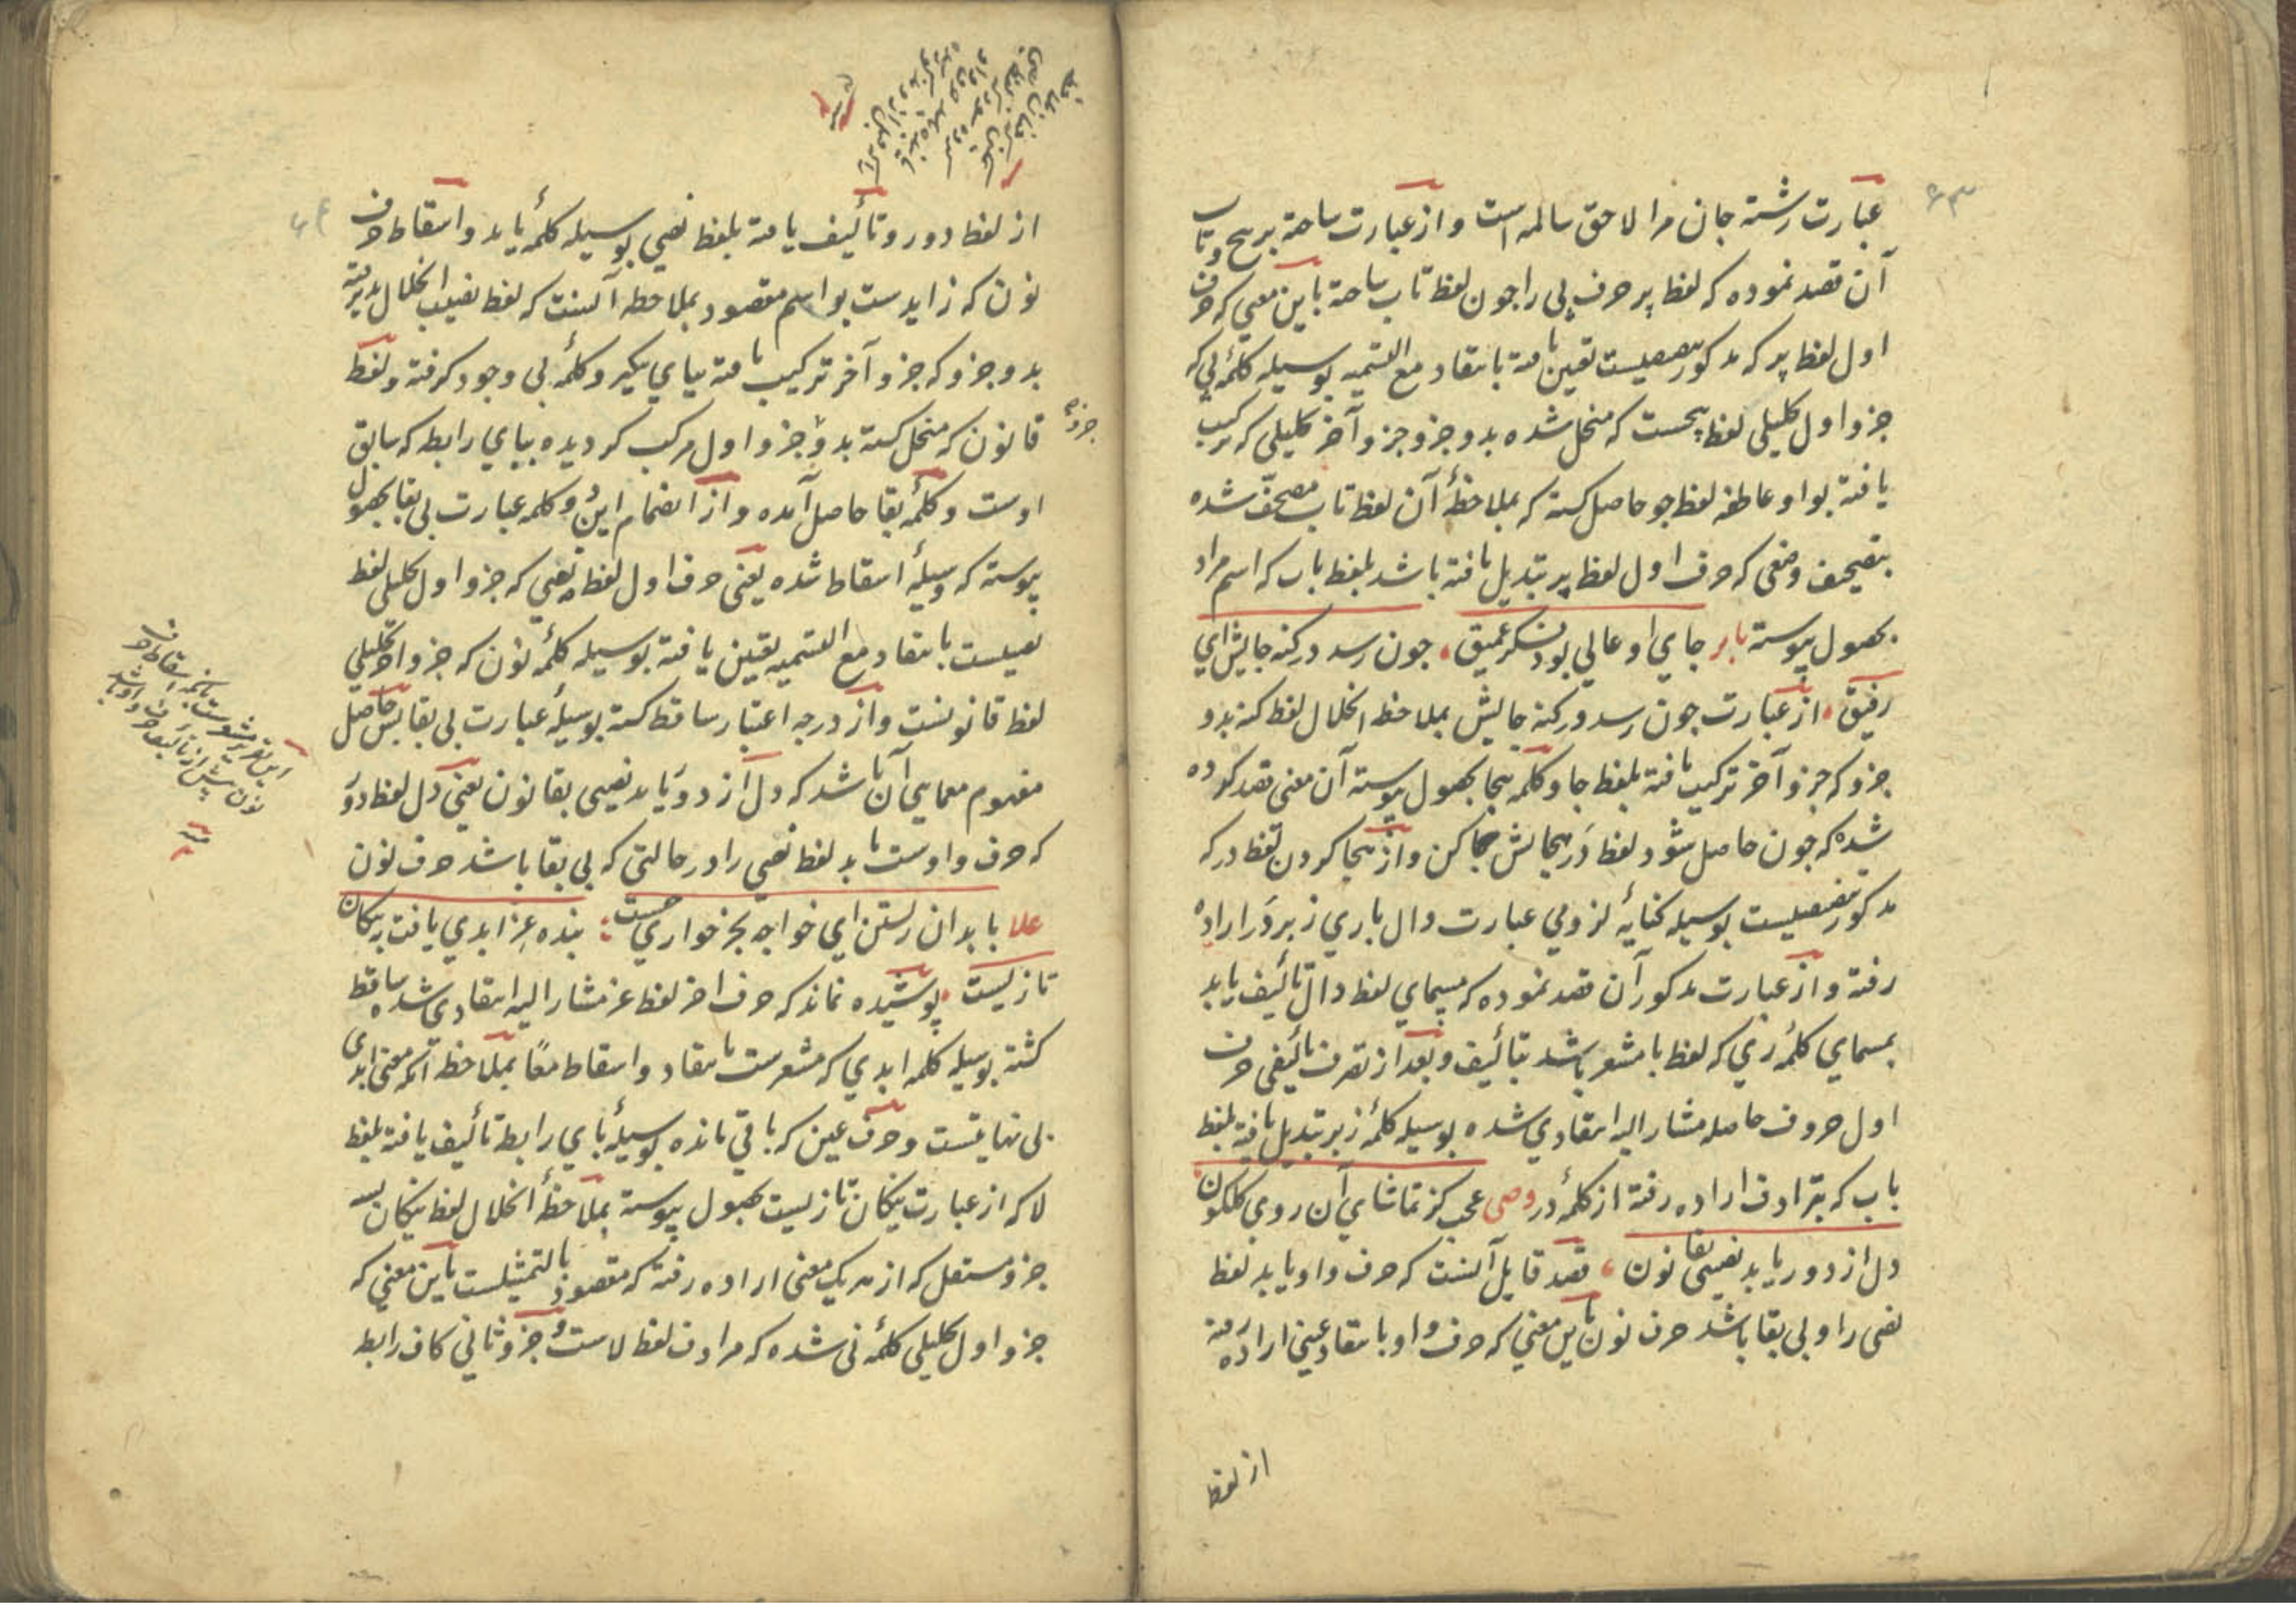 ۶۳
عبارت رشته جان مرا لاحق سالمه است و از عبارت ساخته برپیچ و تاب
آن قصد نموده که لفظ پر حرف پی را چون لفظ تاب ساخته باین معنی که حرف
اول لفظ پر که مذکور بتصیصست تعین یافته بانتقاد مع التسمیه بوسیله کلمهٔ پی که
جزو اول تحلیلی لفظ پیچست که منحل شده بدو جزو و جزو آخر تحلیلی که ترکیب
یافته بواو عاطفه لفظ چو حاصل کشته که بملاحظهٔ آن لفظ تاب مصحّف شده
بتصحیف وضعی که حرف اول لفظ پر تبدیل یافته باشد بلفظ باب که اسم مراد
بحصول پیوسته بابر جای او عالی بود فکر عمیق چون رسد در کنه جایش ای
رفیق از عبارت چون رسد در کنه جایش بملاحظه انحلال لفظ کنه بدو
جزو که جزو آخر ترکیب یافته بلفظ جا و کلمه هجا بحصول پیوسته آن معنی قصد کرده
شده که چون حاصل شود لفظ دَر هجایش هجا کن و از هجا کردن لفظ در که
مذکور بتصیصست بوسیله کنایهٔ لزومی عبارت دال باری زبر دَر اراده
رفته و از عبارت مذکور آن قصد نموده که مسمای لفظ دال تألیف یابد
بمسمای کلمهٔ ری که لفظ با مشعر باشد بتألیف و بعد از تصرف تألیفی حرف
اول حروف حاصله مشار الیه انتقادی شده بوسیله کلمهٔ زبر تبدیل یافته بلفظ
باب که بترادف اراده رفته از کلمهٔ در وصی عجب کز تماشای آن روی گلگون
دل از دور یابد نصیبی بقانون قصد قایل آنست که حرف واو یابد لفظ
نصی را و بی بقا باشد حرف نون باین معنی که حرف واو بانتقاد عینی اراده رفته
از لفظ
از لفظ دور و تألیف یافته بلفظ نصی بوسیله کلمهٔ یابد و اسقاط حرف
نون که زایدست بر اسم مقصود بملاحظه آنست که لفظ نصیب انحلال پذیرفته
بدو جزو که جزو آخر ترکیب یافته بیای تنکیر و کلمهٔ بی وجود کرفته و لفظ
قانون که منحل کشته بدو جزو جزو اول مرکب کردیده ببای رابطه که سابق
اوست و کلمهٔ بقا حاصل آمده و از انضمام این دو کلمه عبارت بی بقا بحصول
پیوسته که وسیلهٔ اسقاط شده یعنی حرف اول لفظ نصی که جزو اول تحلیلی لفظ
نصیبست بانتقاد مع التسمیه تعین یافته بوسیله کلمهٔ نون که جزو آخر تحلیلی
لفظ قانونست و از درجه اعتبار ساقط کشته بوسیلهٔ عبارت بی بقا پس حاصل
مفهوم معمایی آن باشد که دل از دور یابد نصیبی بقانون یعنی دل لفظ دور
که حرف واوست یابد لفظ نصی را در حالتی که بی بقا باشد حرف نون
علا با بدان زستن ای خواجه بجز خواری نیست بنده عز ابدی یافت به نیکان
تا زیست پوشیده نماند که حرف اخر لفظ عز مشار الیه انتقادی شده ساقط
کشته بوسیله کلمه ابدی که مشعرست بانتقاد و اسقاط معًا بملاحظه آنکه معنی ابدی
بی نهایتست و حرف عین که باقی مانده بوسیلهٔ بای رابط تألیف یافته بلفظ
لا که از عبارت نیکان تا زیست بحصول پیوسته بملاحظهٔ انحلال لفظ نیکان بسه
جزو مستقل که از هریک معنی اراده رفته که مقصود بالتمثیلست باین معنی که
جزو اول تحلیلی کلمهٔ نی شده که مرادف لفظ لاست و جزو ثانی کاف رابط